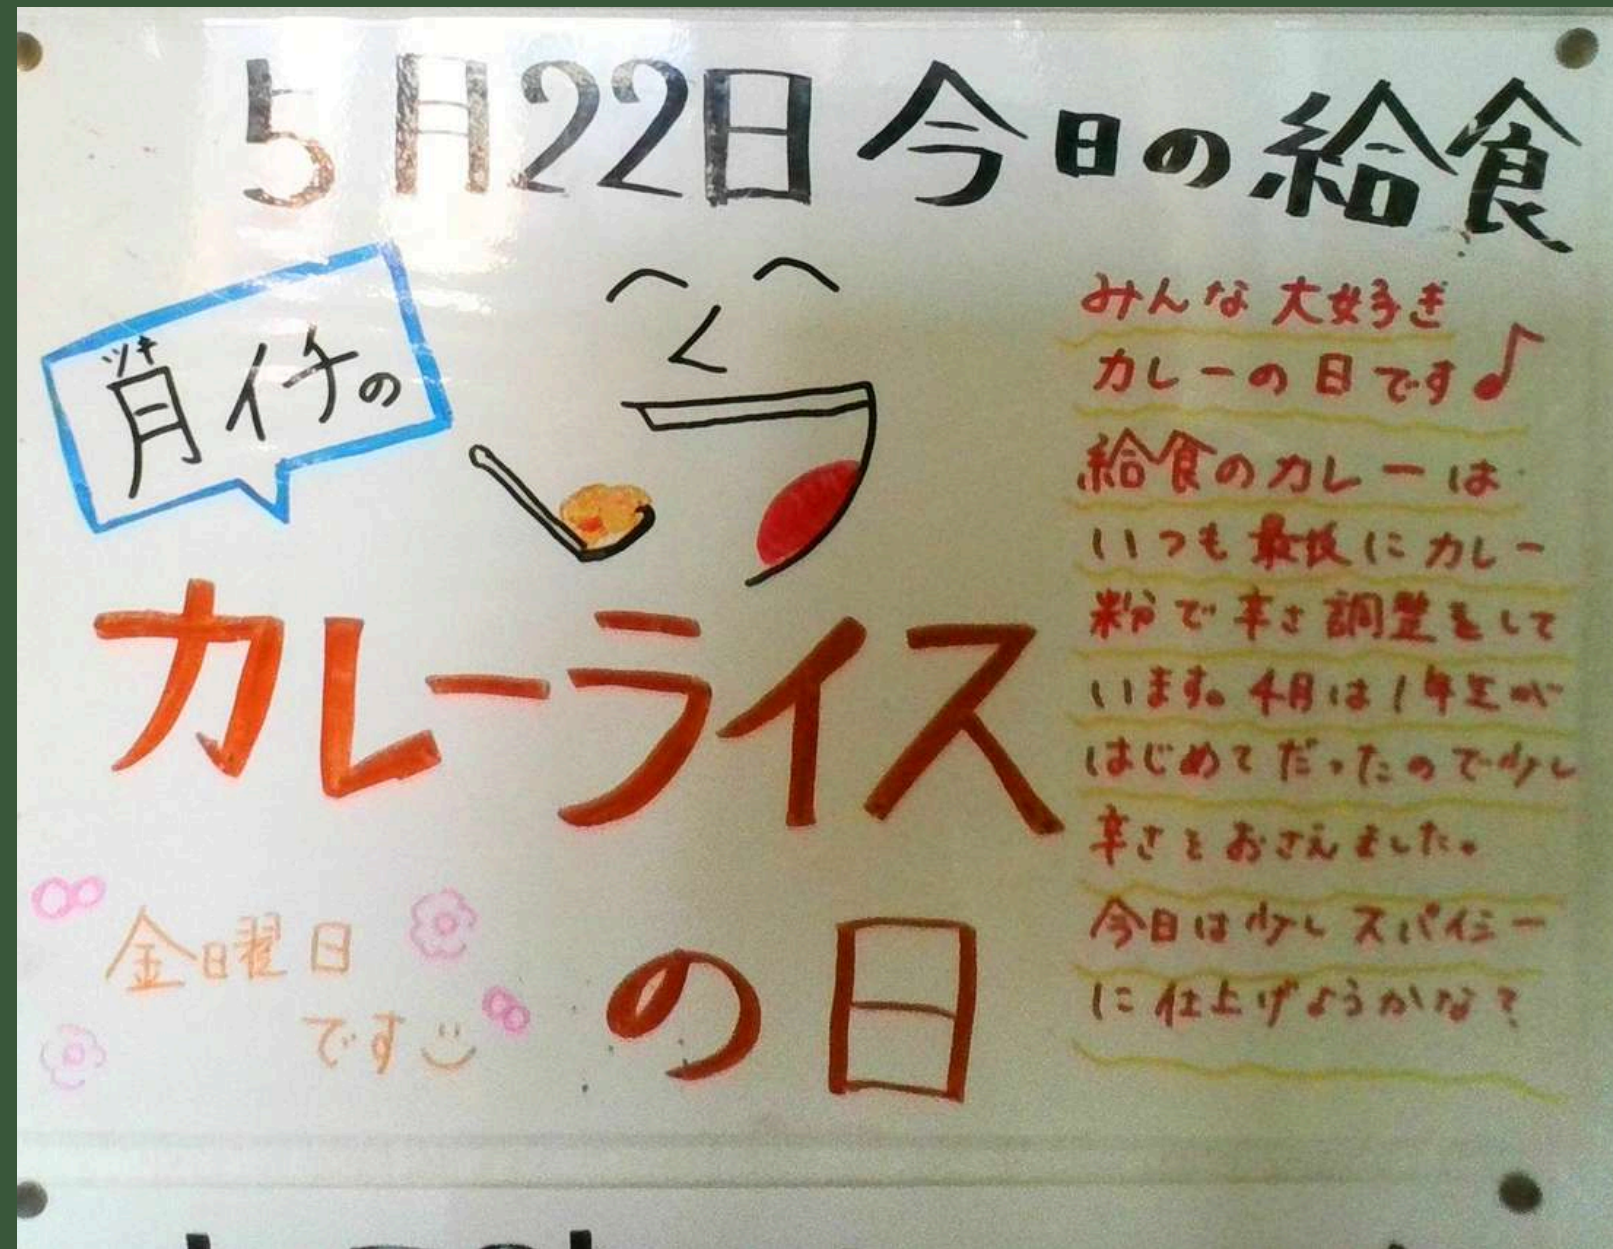 5月22日 今日の給食
ツキ
月イチの
カレーライス
の日
金曜日
です
みんな大好き
カレーの日です♪
給食のカレーは
いつも最後にカレー
粉で辛さ調整をして
います。4月は1年生が
はじめてだったので少し
辛さをおさえました。
今日は少しスパイシー
に仕上げようかな？